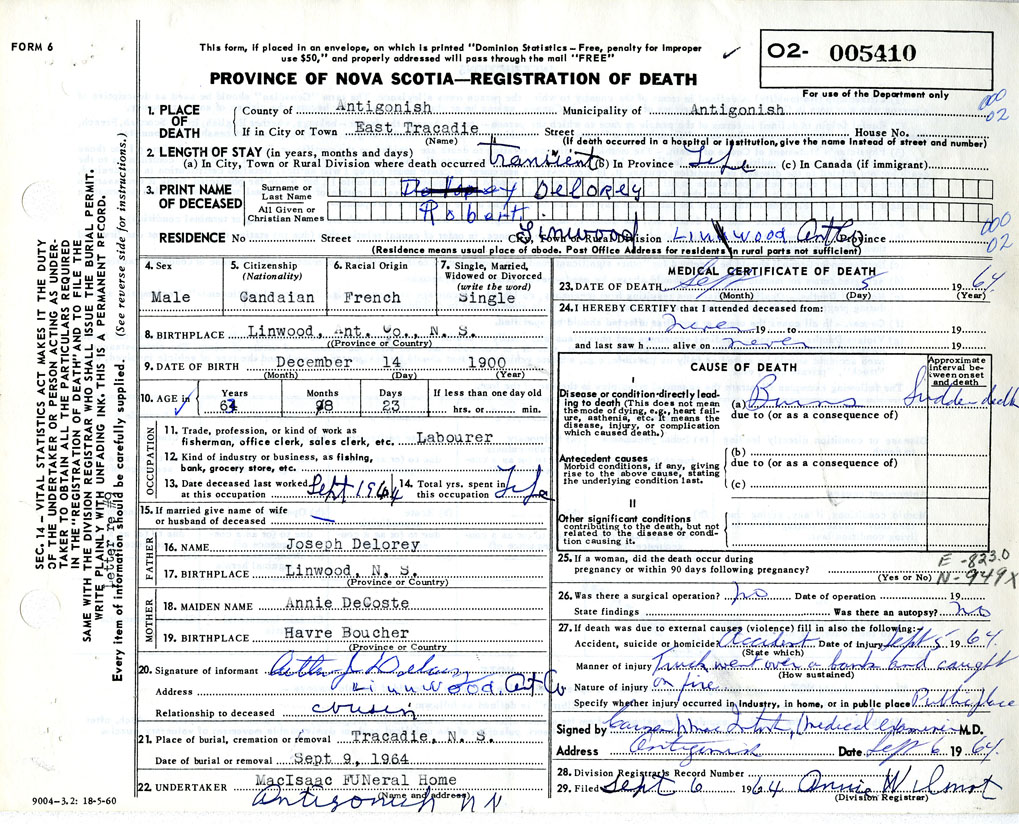 FORM 6
This form, if placed in an envelope, on which is printed "Dominion Statistics – Free, penalty for improper
use $50," and properly addressed will pass through the mail "FREE"
PROVINCE OF NOVA SCOTIA—REGISTRATION OF DEATH
✓
O2- 005410
For use of the Department only
000
02
1. PLACE OF DEATH
County of Antigonish Municipality of Antigonish
If in City or Town East Tracadie Street House No.
(Name) (If death occurred in a hospital or institution, give the name instead of street and number)
2. LENGTH OF STAY (in years, months and days)
(a) In City, Town or Rural Division where death occurred transient (b) In Province Life (c) In Canada (if immigrant)
3. PRINT NAME OF DECEASED
Surname or Last Name Delorey
All Given or Christian Names Robert
000
02
RESIDENCE No Street Linwood City, Town or Rural Division Linwood Province
(Residence means usual place of abode. Post Office Address for residents in rural parts not sufficient)
4. Sex
Male
5. Citizenship
(Nationality)
Candaian
6. Racial Origin
French
7. Single, Married,
Widowed or Divorced
(write the word)
Single
8. BIRTHPLACE Linwood, Ant. Co., N. S.
(Province or Country)
9. DATE OF BIRTH December 14 1900
(Month) (Day) (Year)
10. AGE in Years Months Days If less than one day old
✓ 63 8 23 hrs. or min.
OCCUPATION
11. Trade, profession, or kind of work as
fisherman, office clerk, sales clerk, etc. Labourer
12. Kind of industry or business, as fishing,
bank, grocery store, etc.
13. Date deceased last worked
at this occupation Sept 1964
14. Total yrs. spent in
this occupation Life
15. If married give name of wife
or husband of deceased —
FATHER
16. NAME Joseph Delorey
17. BIRTHPLACE Linwood, N. S.
(Province or Country)
MOTHER
18. MAIDEN NAME Annie DeCoste
19. BIRTHPLACE Havre Boucher
(Province or Country)
20. Signature of informant
Address Linnwood. Ant Co
Relationship to deceased cousin
21. Place of burial, cremation or removal Tracadie, N. S.
Date of burial or removal Sept 9, 1964
22. UNDERTAKER MacIsaac FUNeral Home
(Name and address)
Antigonish N
9004-3.2: 18-5-60
MEDICAL CERTIFICATE OF DEATH
23. DATE OF DEATH Sept 5 1964
(Month) (Day) (Year)
24. I HEREBY CERTIFY that I attended deceased from:
never 19 to 19
and last saw h alive on never 19
CAUSE OF DEATH
Approximate
interval be-
tween onset
and death
I
Disease or condition directly lead-
ing to death (This does not mean
the mode of dying, e.g., heart fail-
ure, asthenia, etc. It means the
disease, injury, or complication
which caused death.)
(a) Burns Sudden death
due to (or as a consequence of)
Antecedent causes
Morbid conditions, if any, giving
rise to the above cause, stating
the underlying condition last.
(b)
due to (or as a consequence of)
(c)
II
Other significant conditions
contributing to the death, but not
related to the disease or condi-
tion causing it.
25. If a woman, did the death occur during
pregnancy or within 90 days following pregnancy?
(Yes or No)
E-823.0
N-949X
26. Was there a surgical operation? no Date of operation 19
State findings Was there an autopsy? no
27. If death was due to external causes (violence) fill in also the following:
Accident, suicide or homicide? Accident Date of injury Sept 5 1964
(State which)
Manner of injury Truck went over a bank and caught
(How sustained)
Nature of injury on fire
Specify whether injury occurred in industry, in home, or in public place Public place
Signed by Medical Examiner M.D.
Address Antigonish Date Sept 6 1964
28. Division Registrar's Record Number
29. Filed Sept 6 1964 Annie Wilmot
(Division Registrar)
SEC. 14 – VITAL STATISTICS ACT MAKES IT THE DUTY
OF THE UNDERTAKER OR PERSON ACTING AS UNDER-
TAKER TO OBTAIN ALL THE PARTICULARS REQUIRED
IN THE "REGISTRATION OF DEATH" AND TO FILE THE
SAME WITH THE DIVISION REGISTRAR WHO SHALL ISSUE THE BURIAL PERMIT.
WRITE PLAINLY WITH UNFADING INK. THIS IS A PERMANENT RECORD.
Letter re #9
Every item of information should be carefully supplied. (See reverse side for instructions.)